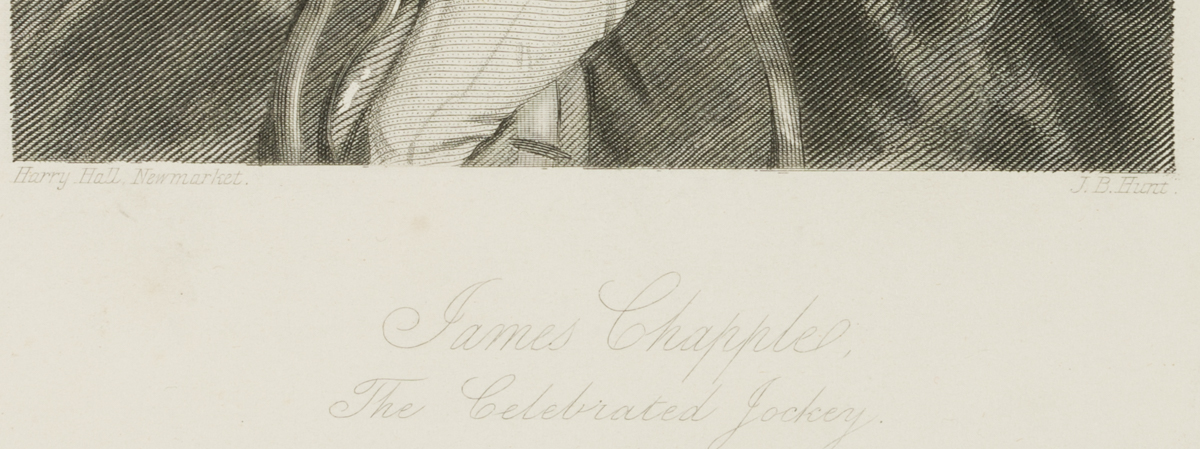 Harry Hall, Newmarket.
J. B. Hunt.
James Chapple,
The Celebrated Jockey.